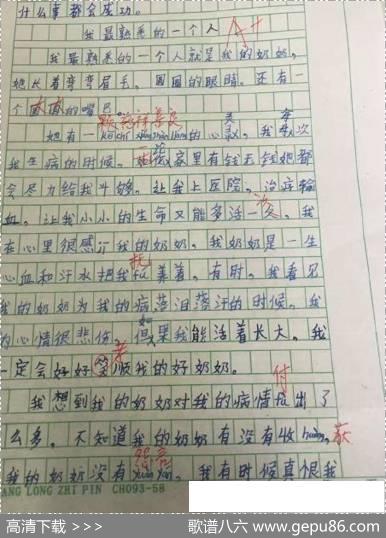 什么事都会成功。
我最熟悉的一个人 A+
我最熟悉的一个人就是我的奶奶,
她长着弯弯眉毛。圆圆的眼睛。还有一
个的嘴巴。
慈祥善良
她有一 的心, 我次
我生病的时候。家里有钱无钱她都
会尽力给我斗够。让我上医院。治病输
血。让我小小的生命又能多活一久。我
在心里很感我的奶奶。我奶奶是一生
心血和汗水把我养着。有时。我看见
托
我的奶奶为我的病落泪落汗的时候。我
的心情很悲伤。果我能活着长大。我
如
一定会好好顺我的好奶奶。
孝
付
我想到我的奶奶对我的病情出了
么多。不知道我的奶奶有没有收 获
怨言
我的奶奶没有 。我有时候真恨我
ANG LONG ZHI PIN CH093-58
高清下载 >>>
歌谱八六 www.gepu86.com